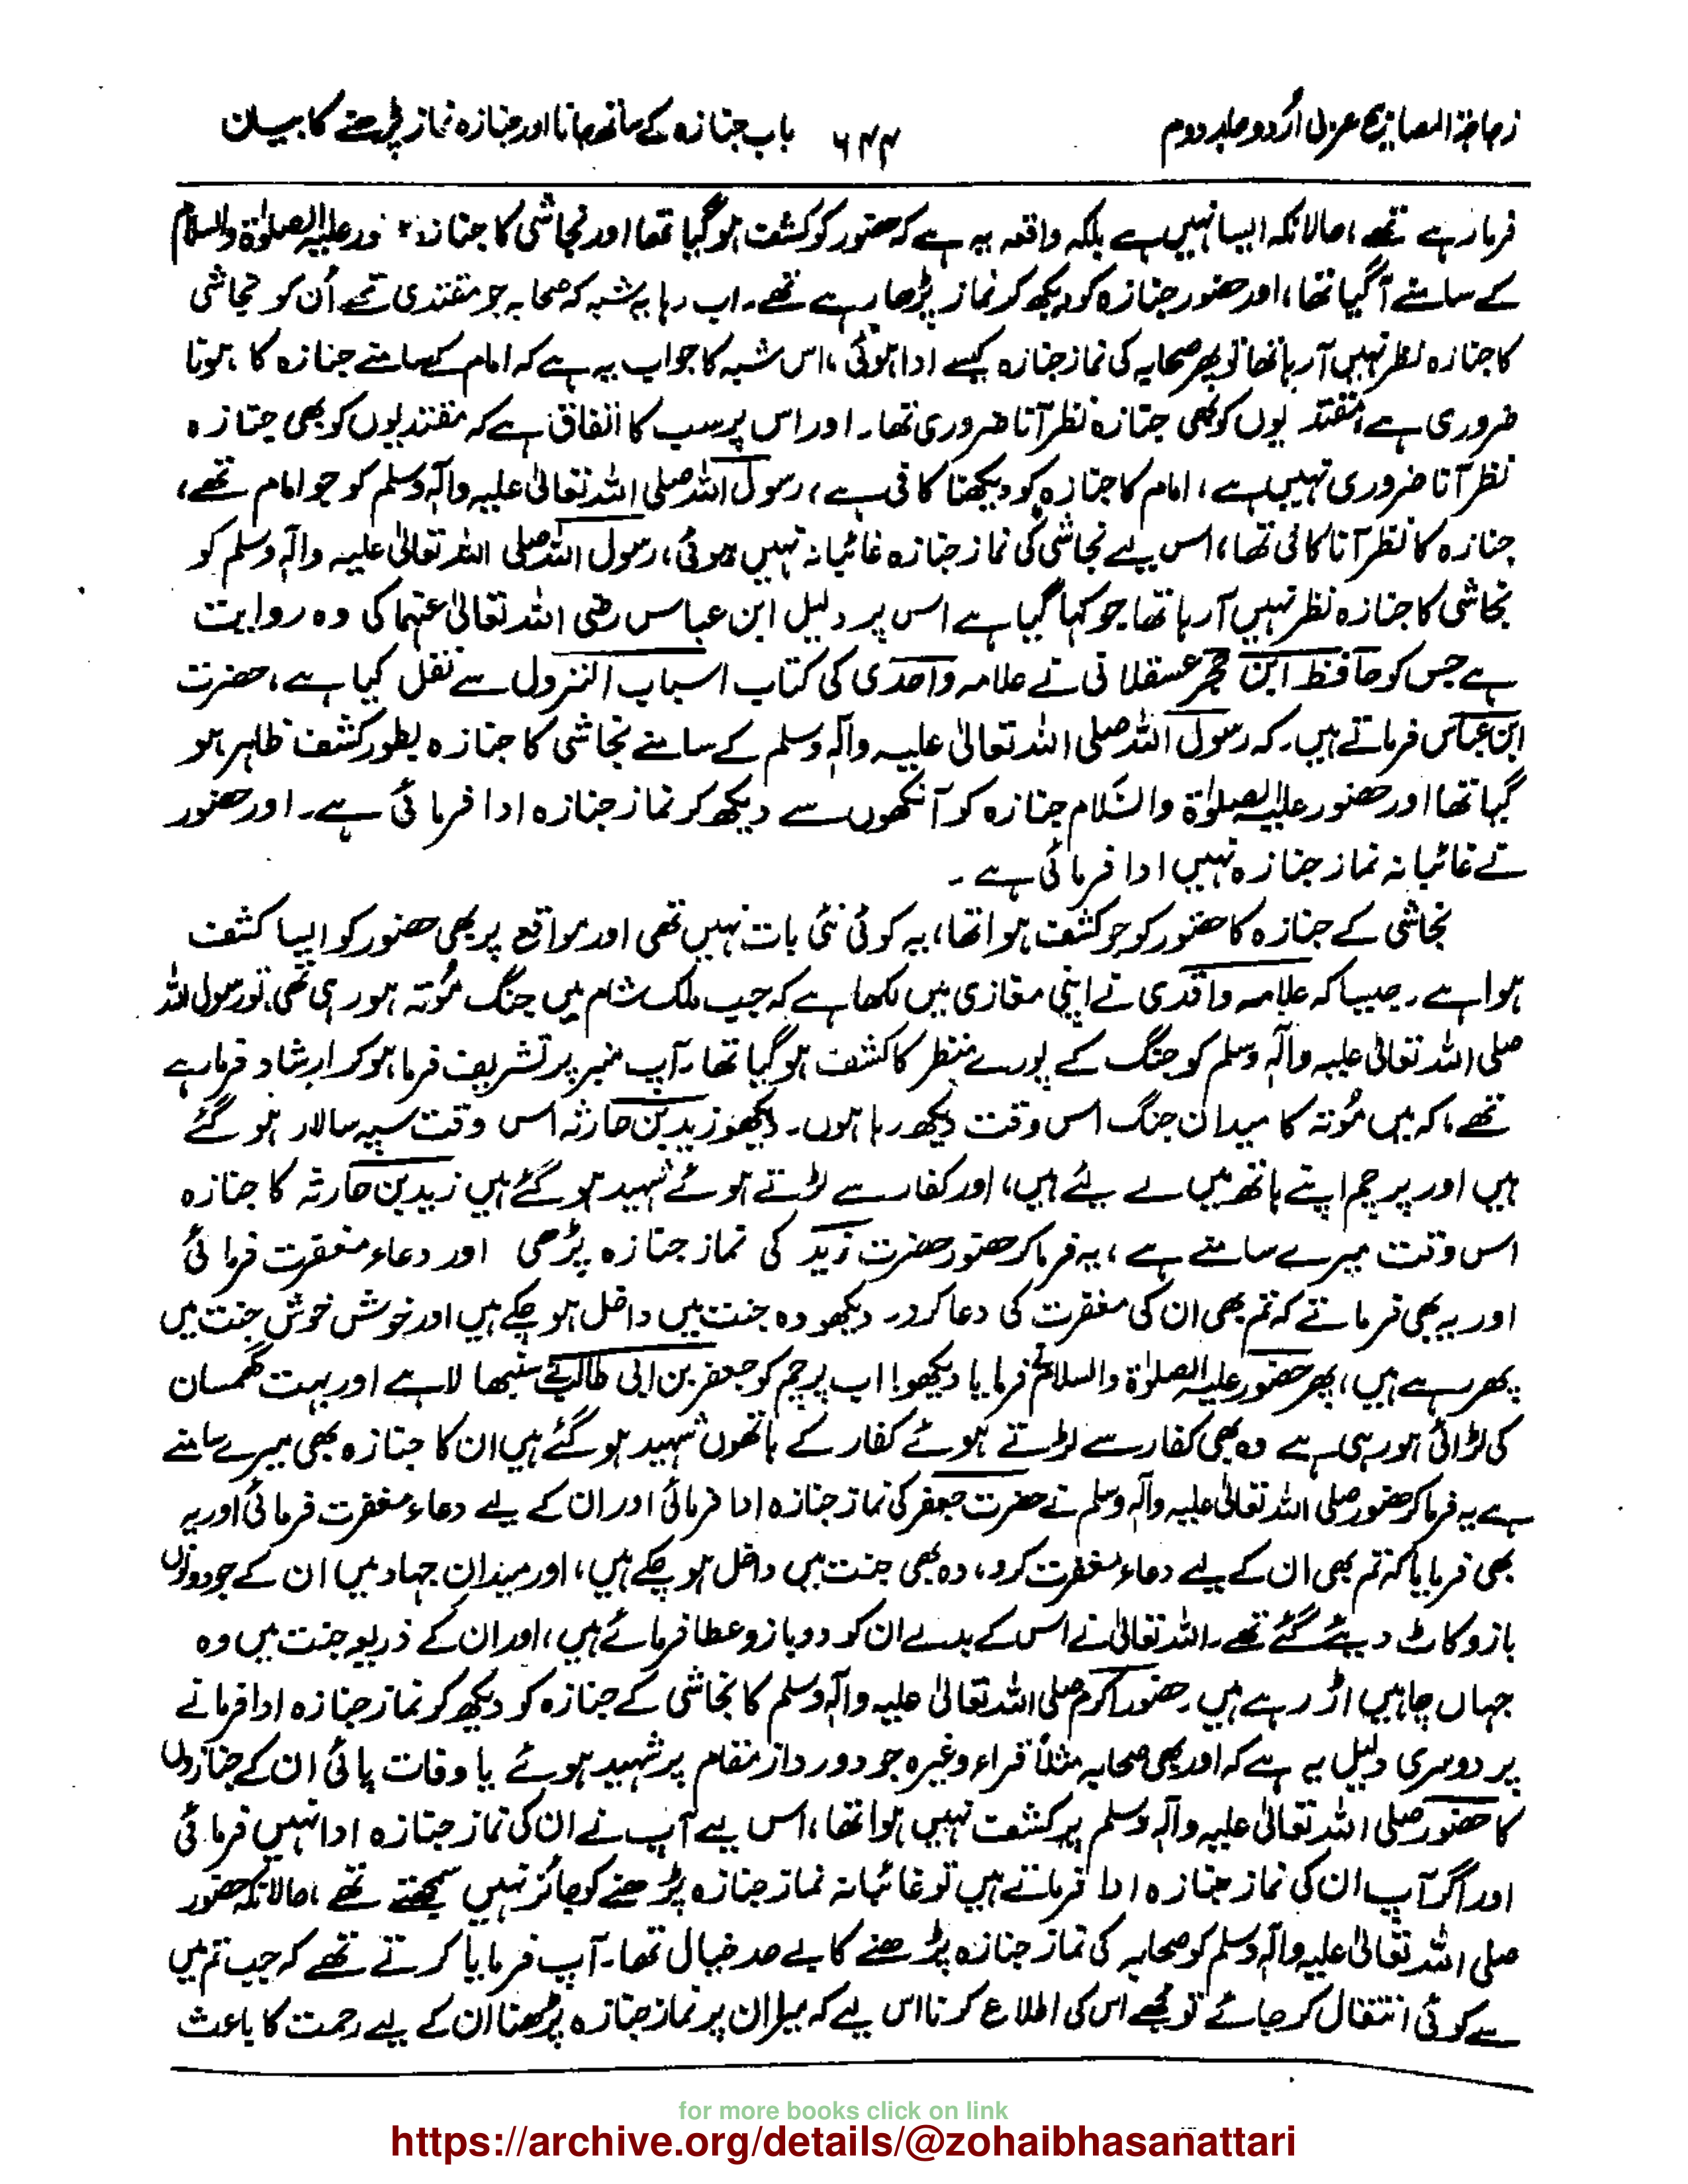 زجاجۃ المصابیح عربی اُردو جلد دوم ۶۴۴ باب جنازہ کے ساتھ جانا اور جنازہ نماز پڑھنے کا بیان
فرما رہے تھے، حالانکہ ایسا نہیں ہے بلکہ واقعہ یہ ہے کہ حضور کو کشف ہو گیا تھا اور نجاشی کا جنازہ علیہ الصلوٰۃ والسلام
کے سامنے آگیا تھا، اور حضور جنازہ کو دیکھ کر نماز پڑھا رہے تھے۔ اب رہا یہ شبہ کہ صحابہ جو مقتدی تھے اُن کو نجاشی
کا جنازہ نظر نہیں آرہا تھا تو پھر صحابہ کی نماز جنازہ کیسے ادا ہوئی، اس شبہ کا جواب یہ ہے کہ امام کے سامنے جنازہ کا ہونا
ضروری ہے، مقتدیوں کو بھی جنازہ نظر آنا ضروری تھا۔ اور اس پر سب کا اتفاق ہے کہ مقتدیوں کو بھی جنازہ
نظر آنا ضروری نہیں ہے، امام کا جنازہ کو دیکھنا کافی ہے، رسول اللہ صلی اللہ تعالیٰ علیہ والٰہ وسلم کو جو امام تھے،
جنازہ کا نظر آنا کافی تھا، اس لیے نجاشی کی نماز جنازہ غائبانہ نہیں ہوئی، رسول اللہ صلی اللہ تعالیٰ علیہ والٰہ وسلم کو
نجاشی کا جنازہ نظر نہیں آرہا تھا جو کہا گیا ہے اس پر دلیل ابن عباس رضی اللہ تعالیٰ عنہما کی وہ روایت
ہے جس کو حافظ ابن حجر عسقلانی نے علامہ واحدی کی کتاب اسباب النزول سے نقل کیا ہے، حضرت
ابن عباس فرماتے ہیں۔ کہ رسول اللہ صلی اللہ تعالیٰ علیہ والٰہ وسلم کے سامنے نجاشی کا جنازہ بطور کشف ظاہر ہو
گیا تھا اور حضور علیہ الصلوٰۃ والسّلام جنازہ کو آنکھوں سے دیکھ کر نماز جنازہ ادا فرمائی ہے۔ اور حضور
نے غائبانہ نماز جنازہ نہیں ادا فرمائی ہے۔
نجاشی کے جنازہ کا حضور کو جو کشف ہوا تھا، یہ کوئی نئی بات نہیں تھی اور مواقع پر بھی حضور کو ایسا کشف
ہوا ہے۔ جیسا کہ علامہ واقدی نے اپنی مغازی میں لکھا ہے کہ جب ملک شام میں جنگ مُوتہ ہو رہی تھی، تو رسول اللہ
صلی اللہ تعالیٰ علیہ والٰہ وسلم کو جنگ کے پورے منظر کا کشف ہو گیا تھا۔ آپ منبر پر تشریف فرما ہو کر ارشاد فرما رہے
تھے، کہ میں مُوتہ کا میدان جنگ اس وقت دیکھ رہا ہوں۔ دیکھو زید بن حارثہ اس وقت سپہ سالار ہو گئے
ہیں اور پرچم اپنے ہاتھ میں لے لئے ہیں، اور کفار سے لڑتے ہوئے شہید ہو گئے ہیں زید بن حارثہ کا جنازہ
اس وقت میرے سامنے ہے، یہ فرما کر حضور حضرت زید کی نماز جنازہ پڑھی اور دعاء مغفرت فرمائی
اور یہ بھی فرماتے کہ تم بھی ان کی مغفرت کی دعا کرو۔ دیکھو وہ جنت میں داخل ہو چکے ہیں اور خوش خوش جنت میں
پھر رہے ہیں، پھر حضور علیہ الصلوٰۃ والسلام نے فرمایا دیکھو! اب پرچم کو جعفر بن ابی طالب نے سنبھالا ہے اور بہت گھمسان
کی لڑائی ہو رہی ہے وہ بھی کفار سے لڑتے ہوئے کفار کے ہاتھوں شہید ہو گئے ہیں ان کا جنازہ بھی میرے سامنے
ہے یہ فرما کر حضور صلی اللہ تعالیٰ علیہ والٰہ وسلم نے حضرت جعفر کی نماز جنازہ ادا فرمائی اور ان کے لیے دعاء مغفرت فرمائی اور یہ
بھی فرمایا کہ تم بھی ان کے لیے دعاء مغفرت کرو، وہ بھی جنت میں داخل ہو چکے ہیں، اور میدان جہاد میں ان کے جو دونوں
بازو کاٹ دیئے گئے تھے۔ اللہ تعالیٰ نے اس کے بدلے ان کو دو بازو عطا فرمائے ہیں، اور ان کے ذریعہ جنت میں وہ
جہاں چاہیں اڑ رہے ہیں۔ حضور اکرم صلی اللہ تعالیٰ علیہ والٰہ وسلم کا نجاشی کے جنازہ کو دیکھ کر نماز جنازہ ادا فرمانے
پر دوسری دلیل یہ ہے کہ اور بھی صحابہ مثلاً قراء وغیرہ جو دور دراز مقام پر شہید ہوئے یا وفات پائی ان کے جنازوں
کا حضور صلی اللہ تعالیٰ علیہ والٰہ وسلم پر کشف نہیں ہوا تھا، اس لیے آپ نے ان کی نماز جنازہ ادا نہیں فرمائی
اور اگر آپ ان کی نماز جنازہ ادا فرماتے ہیں تو غائبانہ نماز جنازہ پڑھنے کو جائز نہیں سمجھتے تھے، حالانکہ حضور
صلی اللہ تعالیٰ علیہ والٰہ وسلم کو صحابہ کی نماز جنازہ پڑھنے کا بے حد خیال تھا۔ آپ فرمایا کرتے تھے کہ جب تم میں
سے کوئی انتقال کر جائے تو مجھے اس کی اطلاع کرنا اس لیے کہ میرا ان پر نماز جنازہ پڑھنا ان کے لیے رحمت کا باعث
for more books click on link
https://archive.org/details/@zohaibhasanattari